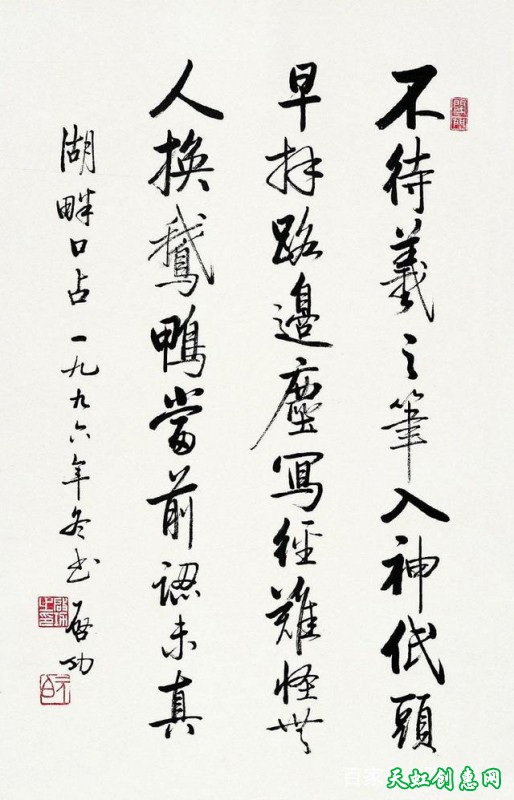 不待羲之筆入神低頭
早拜路邊塵寫經難怪世
人換鵝鴨當前認未真
湖畔口占一九九六年冬书启功
元白
天虹创惠网